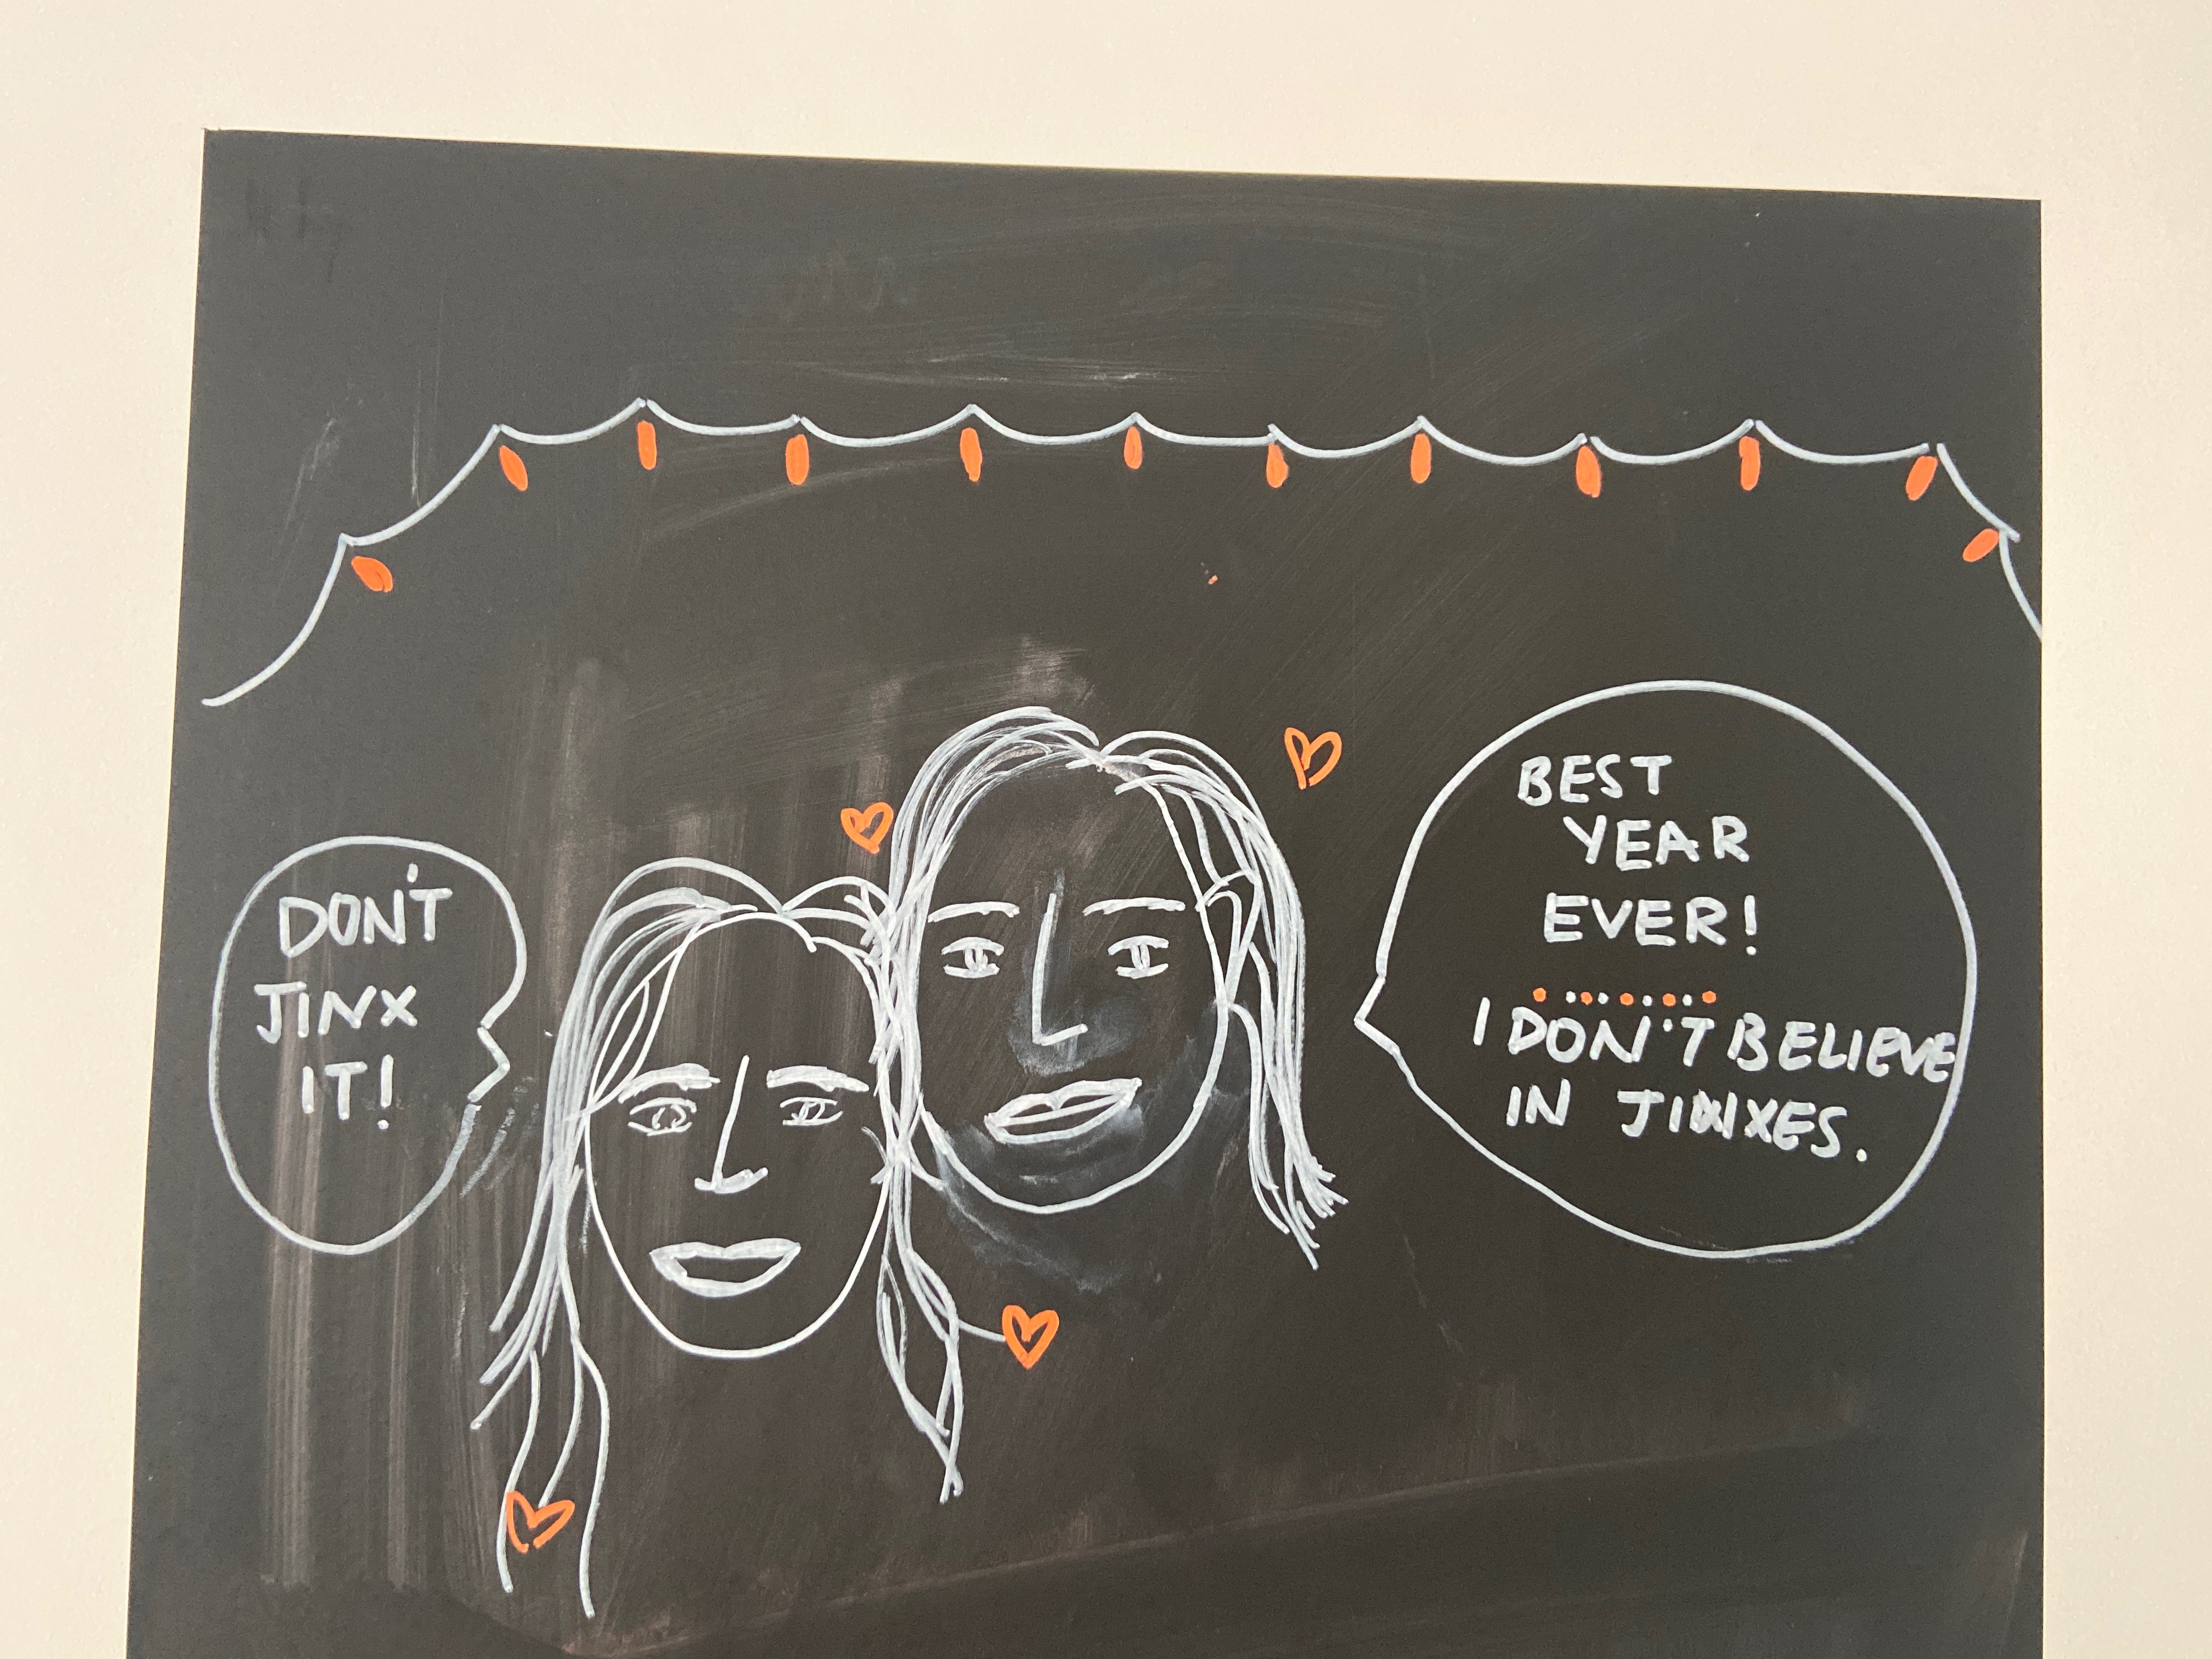 DON'T
JINX
IT!
BEST
YEAR
EVER!
I DON'T BELIEVE
IN JINXES.